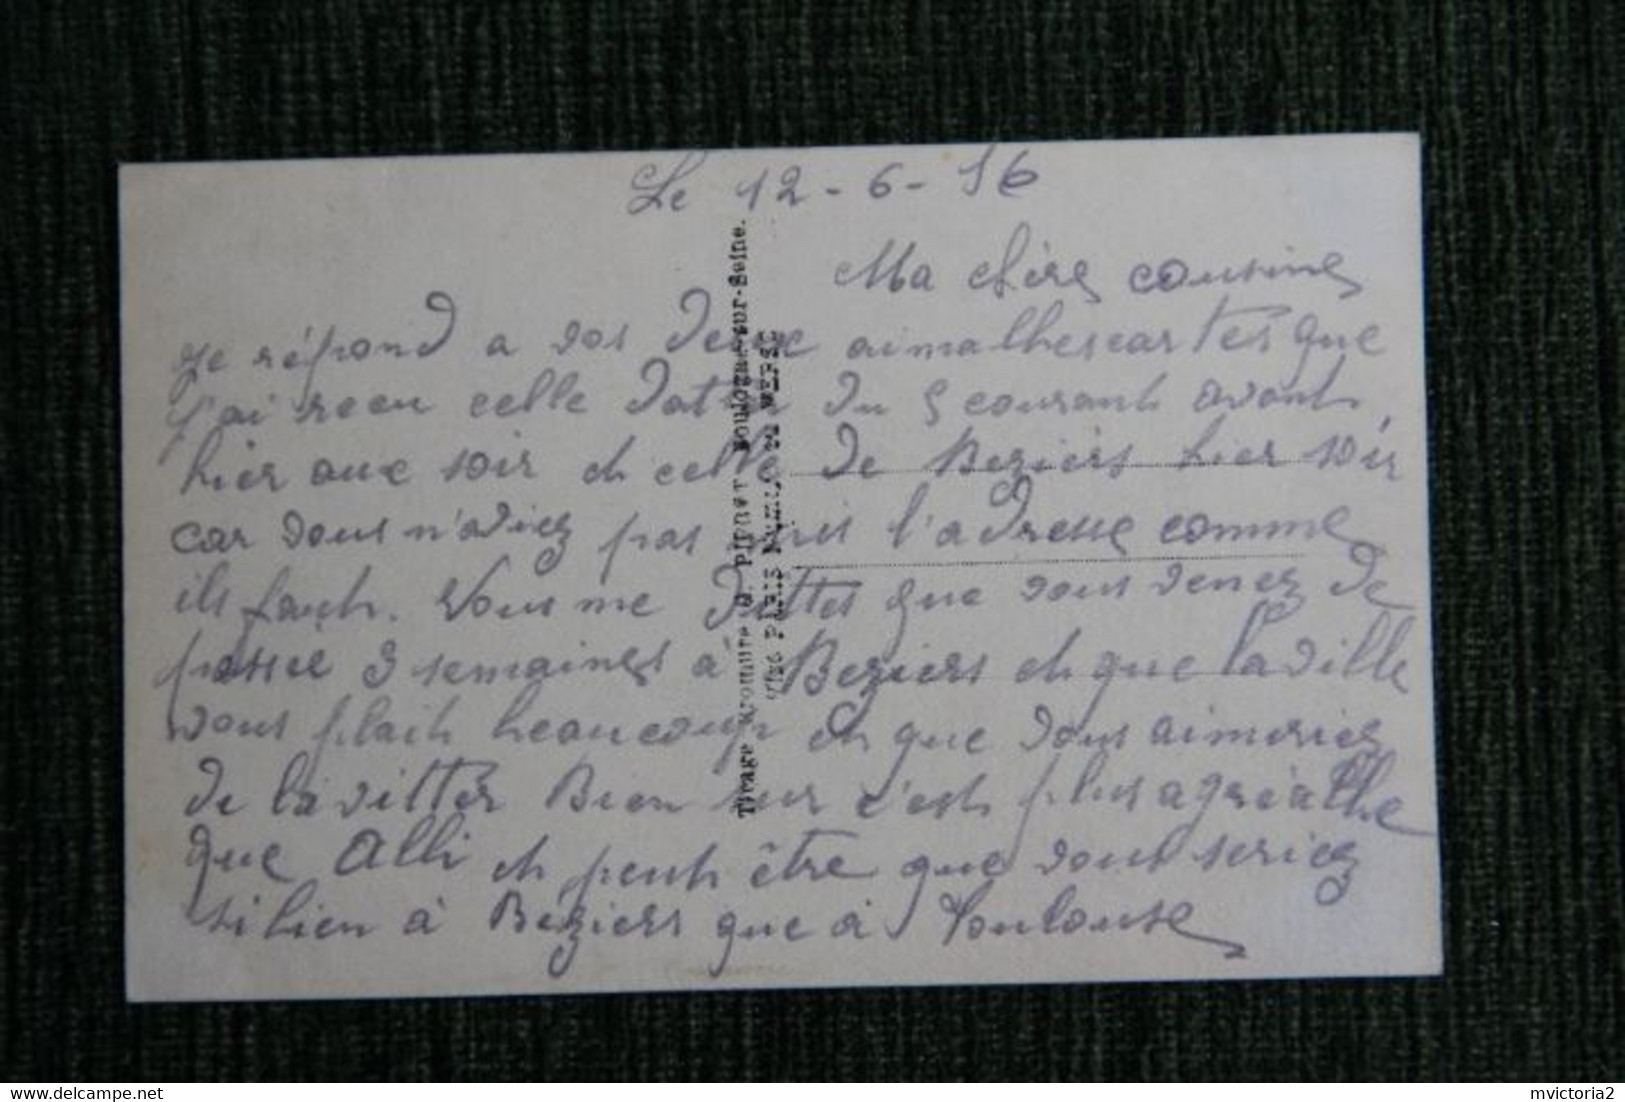 Le 12-6-16
Ma chère cousine
je répond a vos deux aimalhes cartes que
j'ai recu celle datter du 5 courant avant
hier aue soir et celle de Beziers hier soir
car vous n'aviez pas mis l'adresse comme
ils faut. Vous me dittes que vous venez de
passée 3 semaines à Beziers et que la ville
vous plait beaucoup et que vous aimeriez
de la visitter Bien sur c'est plus agréalhe
que Albi et peut être que vous seriez
si bien à Béziers que à Toulouse
Tirage Kromure Boulogne-sur-Seine.
Visé PARIS
mvictoria2